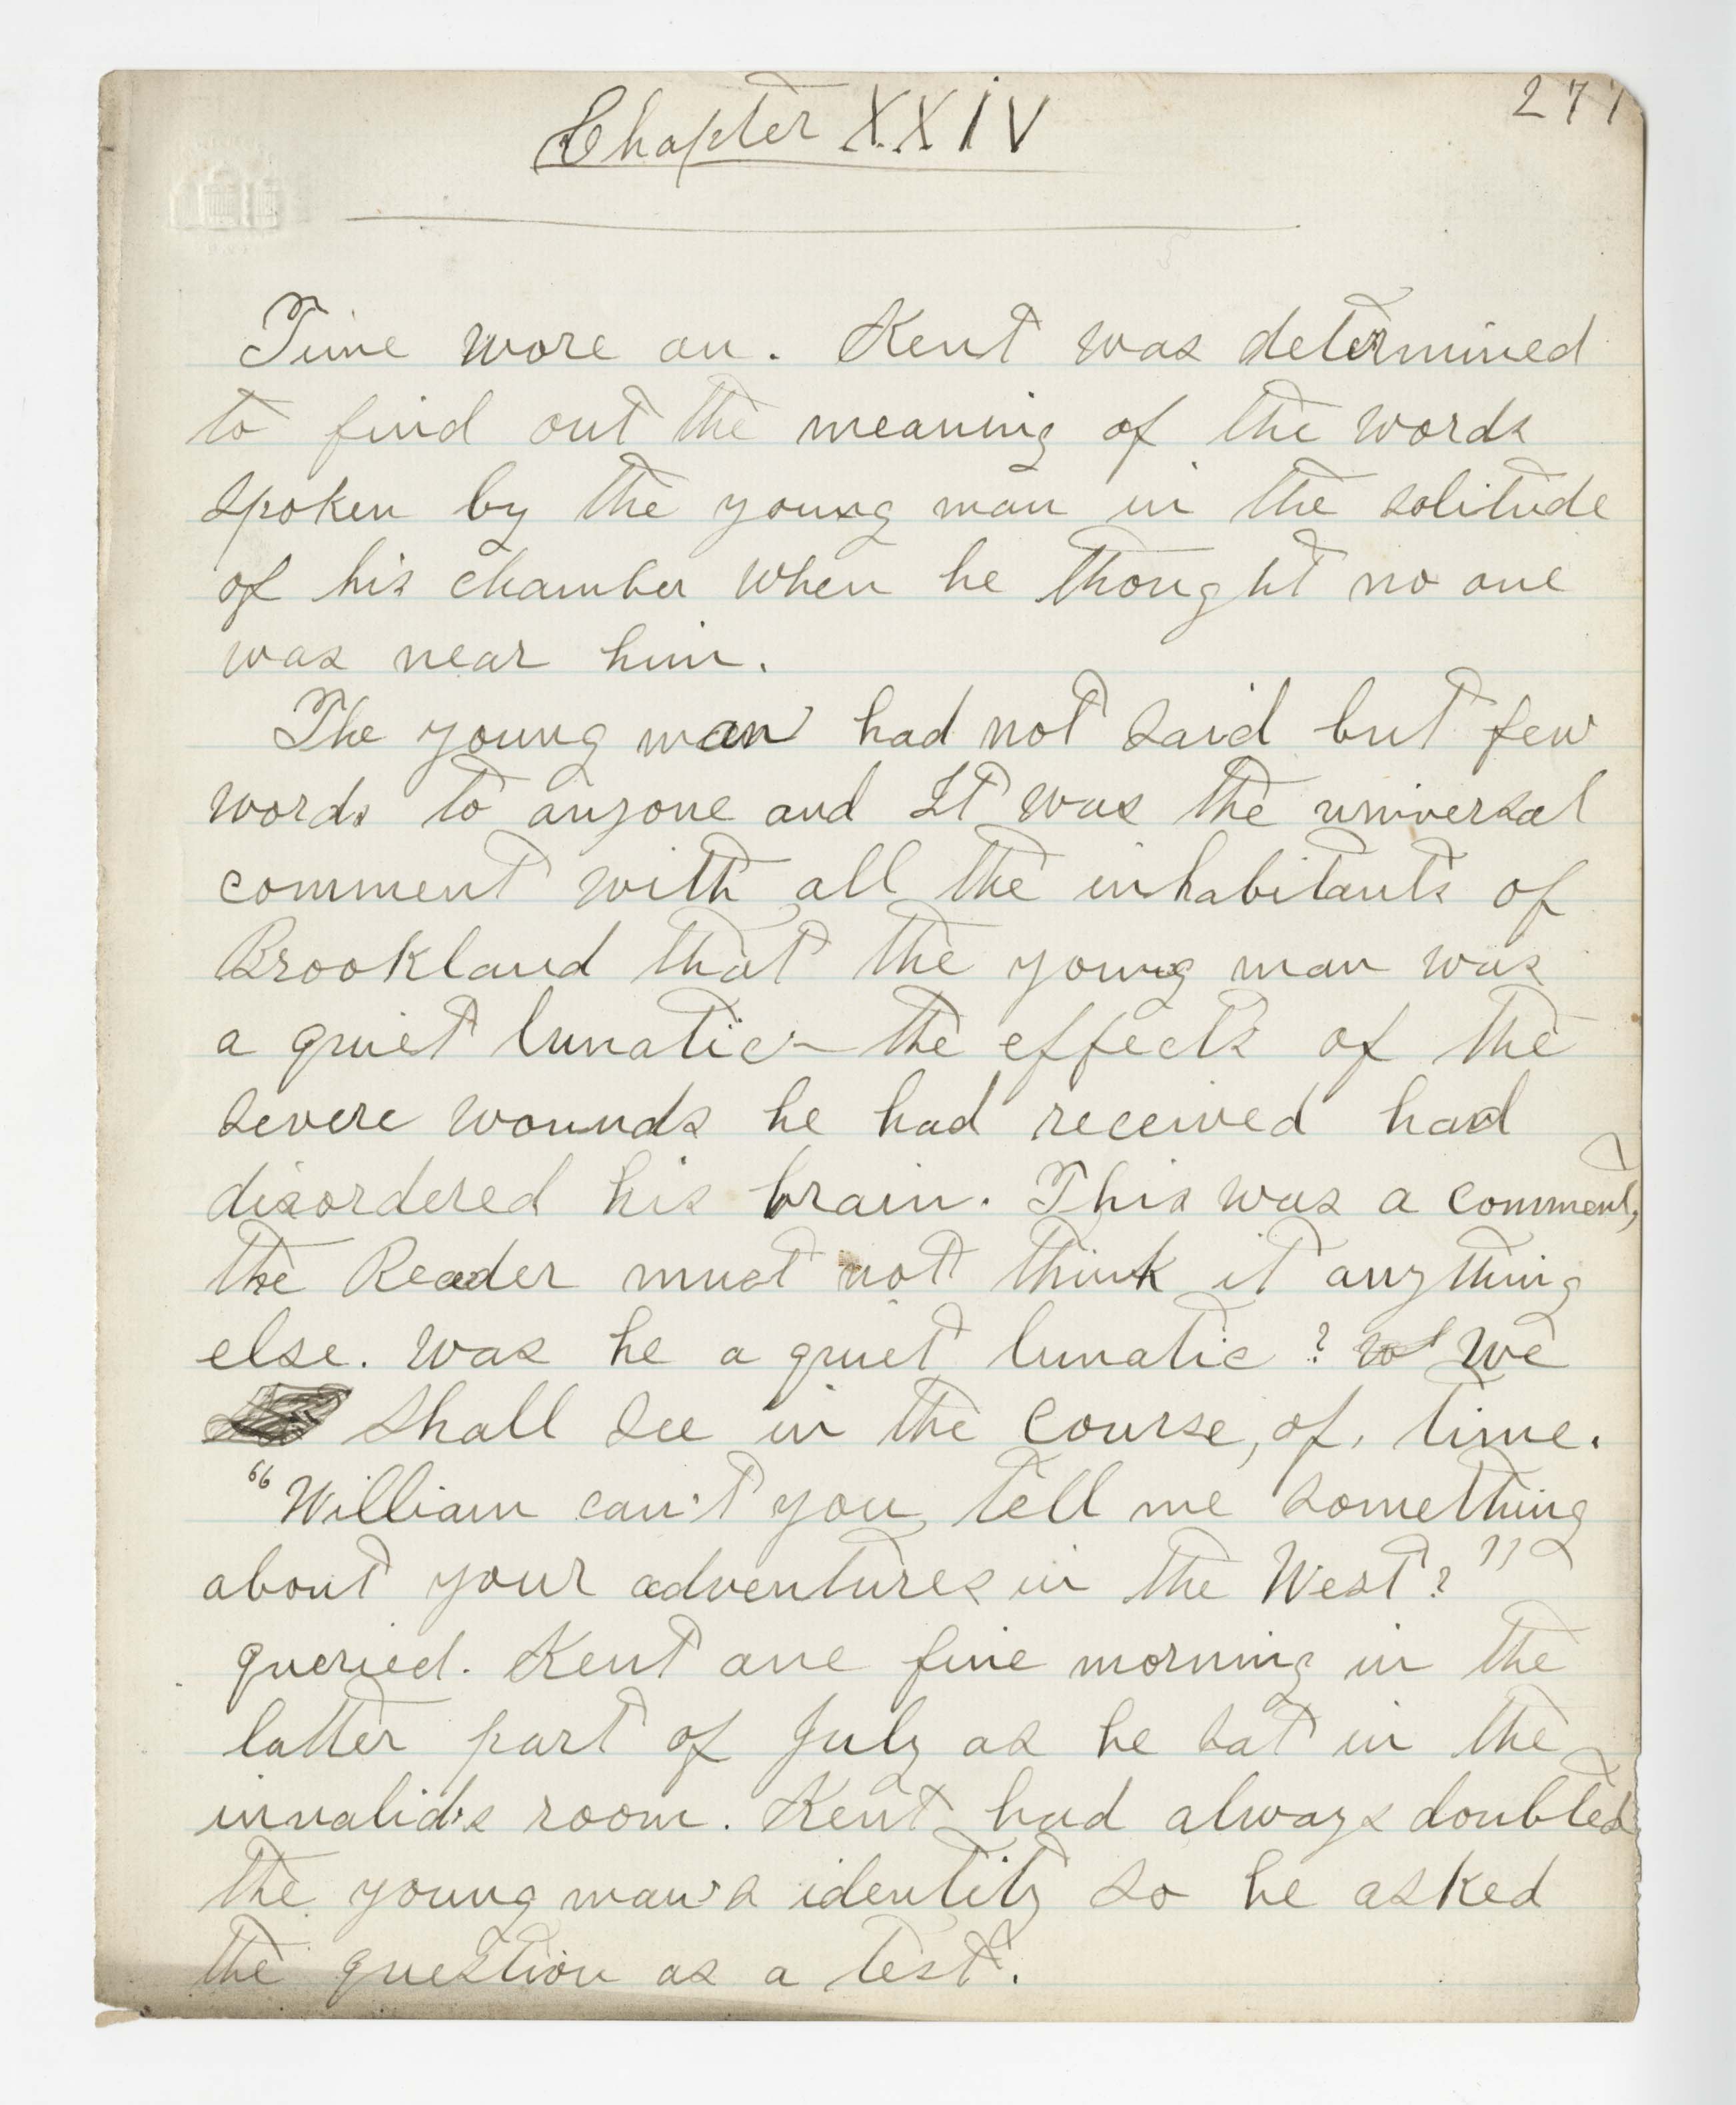 277
Chapter XXIV
Time wore on. Kent was determined
to find out the meaning of the words
spoken by the young man in the solitude
of his chamber when he thought no one
was near him.
The young man had not said but few
words to anyone and It was the universal
comment with all the inhabitants of
Brookland that the young man was
a quiet lunatic - the effects of the
severe wounds he had received had
disordered his brain. This was a comment,
the Reader must not think it anything
else. Was he a quiet lunatic? We
shall see in the course, of, time.
"William can't you tell me something
about your adventures in the West?"
queried. Kent one fine morning in the
latter part of July as he sat in the
invalid's room. Kent had always doubted
the young man's identity so he asked
the question as a test.